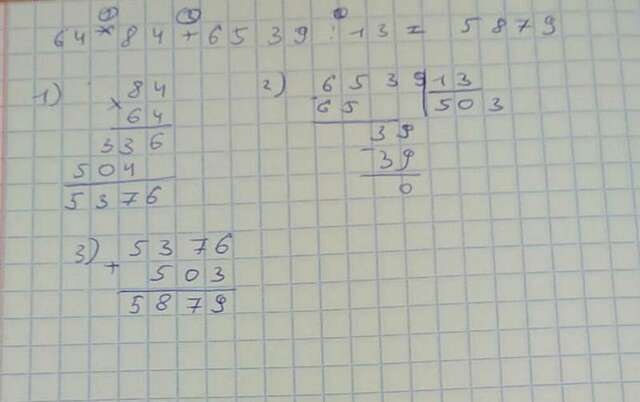 64 × 84 + 6539 : 13 = 5879
1) 84
× 64
336
504
5376
2) 6539 13
- 65 503
39
- 39
0
3) 5376
+ 503
5879